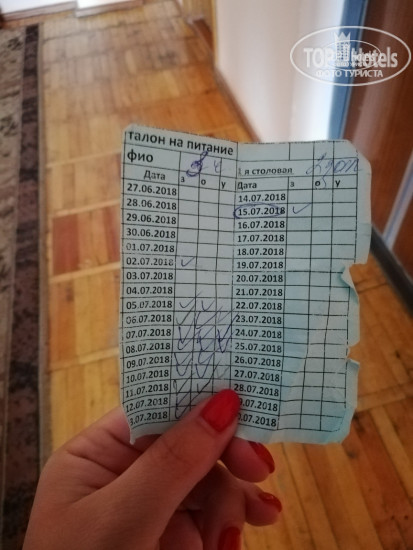 TOPHotels
ФОТО ТУРИСТА
талон на питание
фио
1я столовая
Дата з о у
Дата з о у
27.06.2018
28.06.2018
29.06.2018
30.06.2018
01.07.2018
02.07.2018
03.07.2018
04.07.2018
05.07.2018
06.07.2018
07.07.2018
08.07.2018
09.07.2018
10.07.2018
11.07.2018
12.07.2018
3.07.2018
14.07.2018
15.07.2018
16.07.2018
17.07.2018
18.07.2018
19.07.2018
20.07.2018
21.07.2018
22.07.2018
23.07.2018
24.07.2018
25.07.2018
26.07.2018
27.07.2018
28.07.2018
9.07.2018
0.07.2018